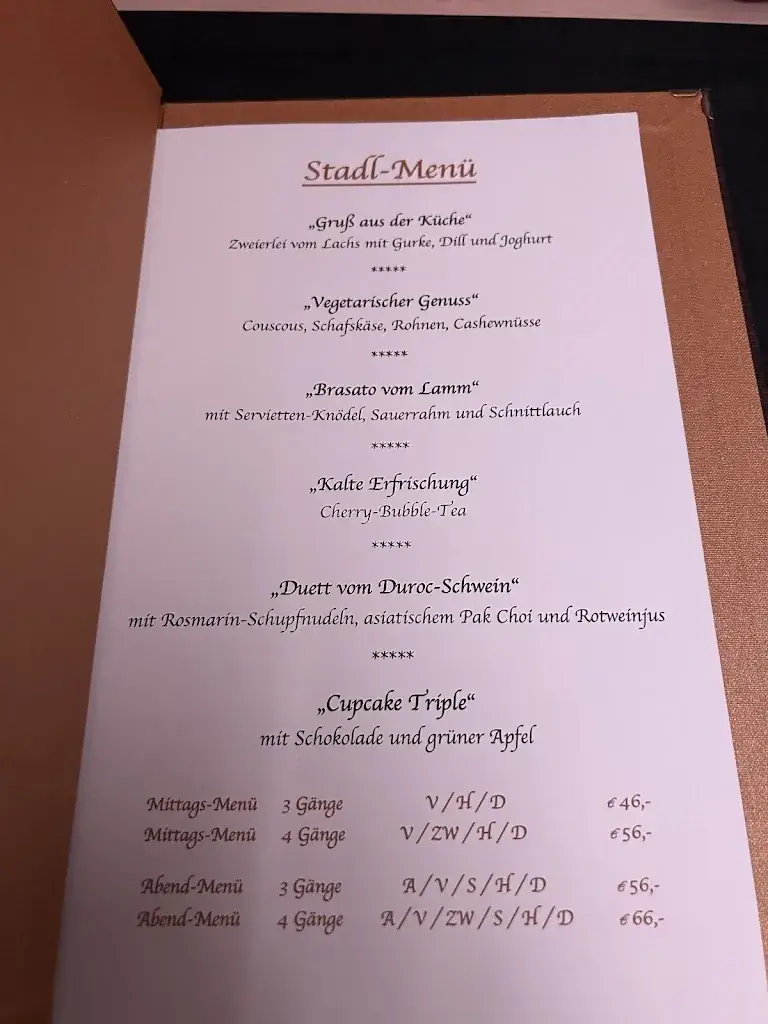 Stadl-Menü
„Gruß aus der Küche“
Zweierlei vom Lachs mit Gurke, Dill und Joghurt
*****
„Vegetarischer Genuss“
Couscous, Schafskäse, Rohnen, Cashewnüsse
*****
„Brasato vom Lamm“
mit Servietten-Knödel, Sauerrahm und Schnittlauch
*****
„Kalte Erfrischung“
Cherry-Bubble-Tea
*****
„Duett vom Duroc-Schwein“
mit Rosmarin-Schupfnudeln, asiatischem Pak Choi und Rotweinjus
*****
„Cupcake Triple“
mit Schokolade und grüner Apfel
Mittags-Menü 3 Gänge V/H/D € 46,-
Mittags-Menü 4 Gänge V/ZW/H/D € 56,-
Abend-Menü 3 Gänge A/V/S/H/D € 56,-
Abend-Menü 4 Gänge A/V/ZW/S/H/D € 66,-